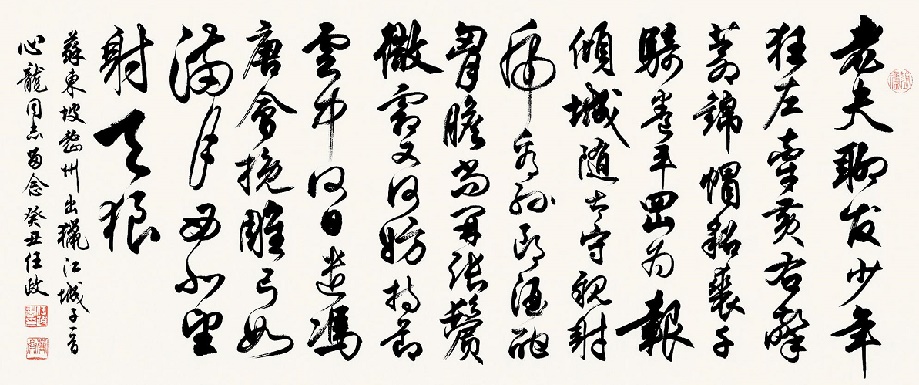 老夫聊發少年
狂左牽黃右擎
蒼錦帽貂裘千
騎卷平岡為報
傾城隨太守親射
虎看孫郎酒酣
胷膽尚開張鬢
微霜又何妨持節
雲中何日遣馮
唐會挽雕弓如
滿月西北望
射天狼
蘇東坡密州出獵江城子一首
心龍同志留念 癸丑任政